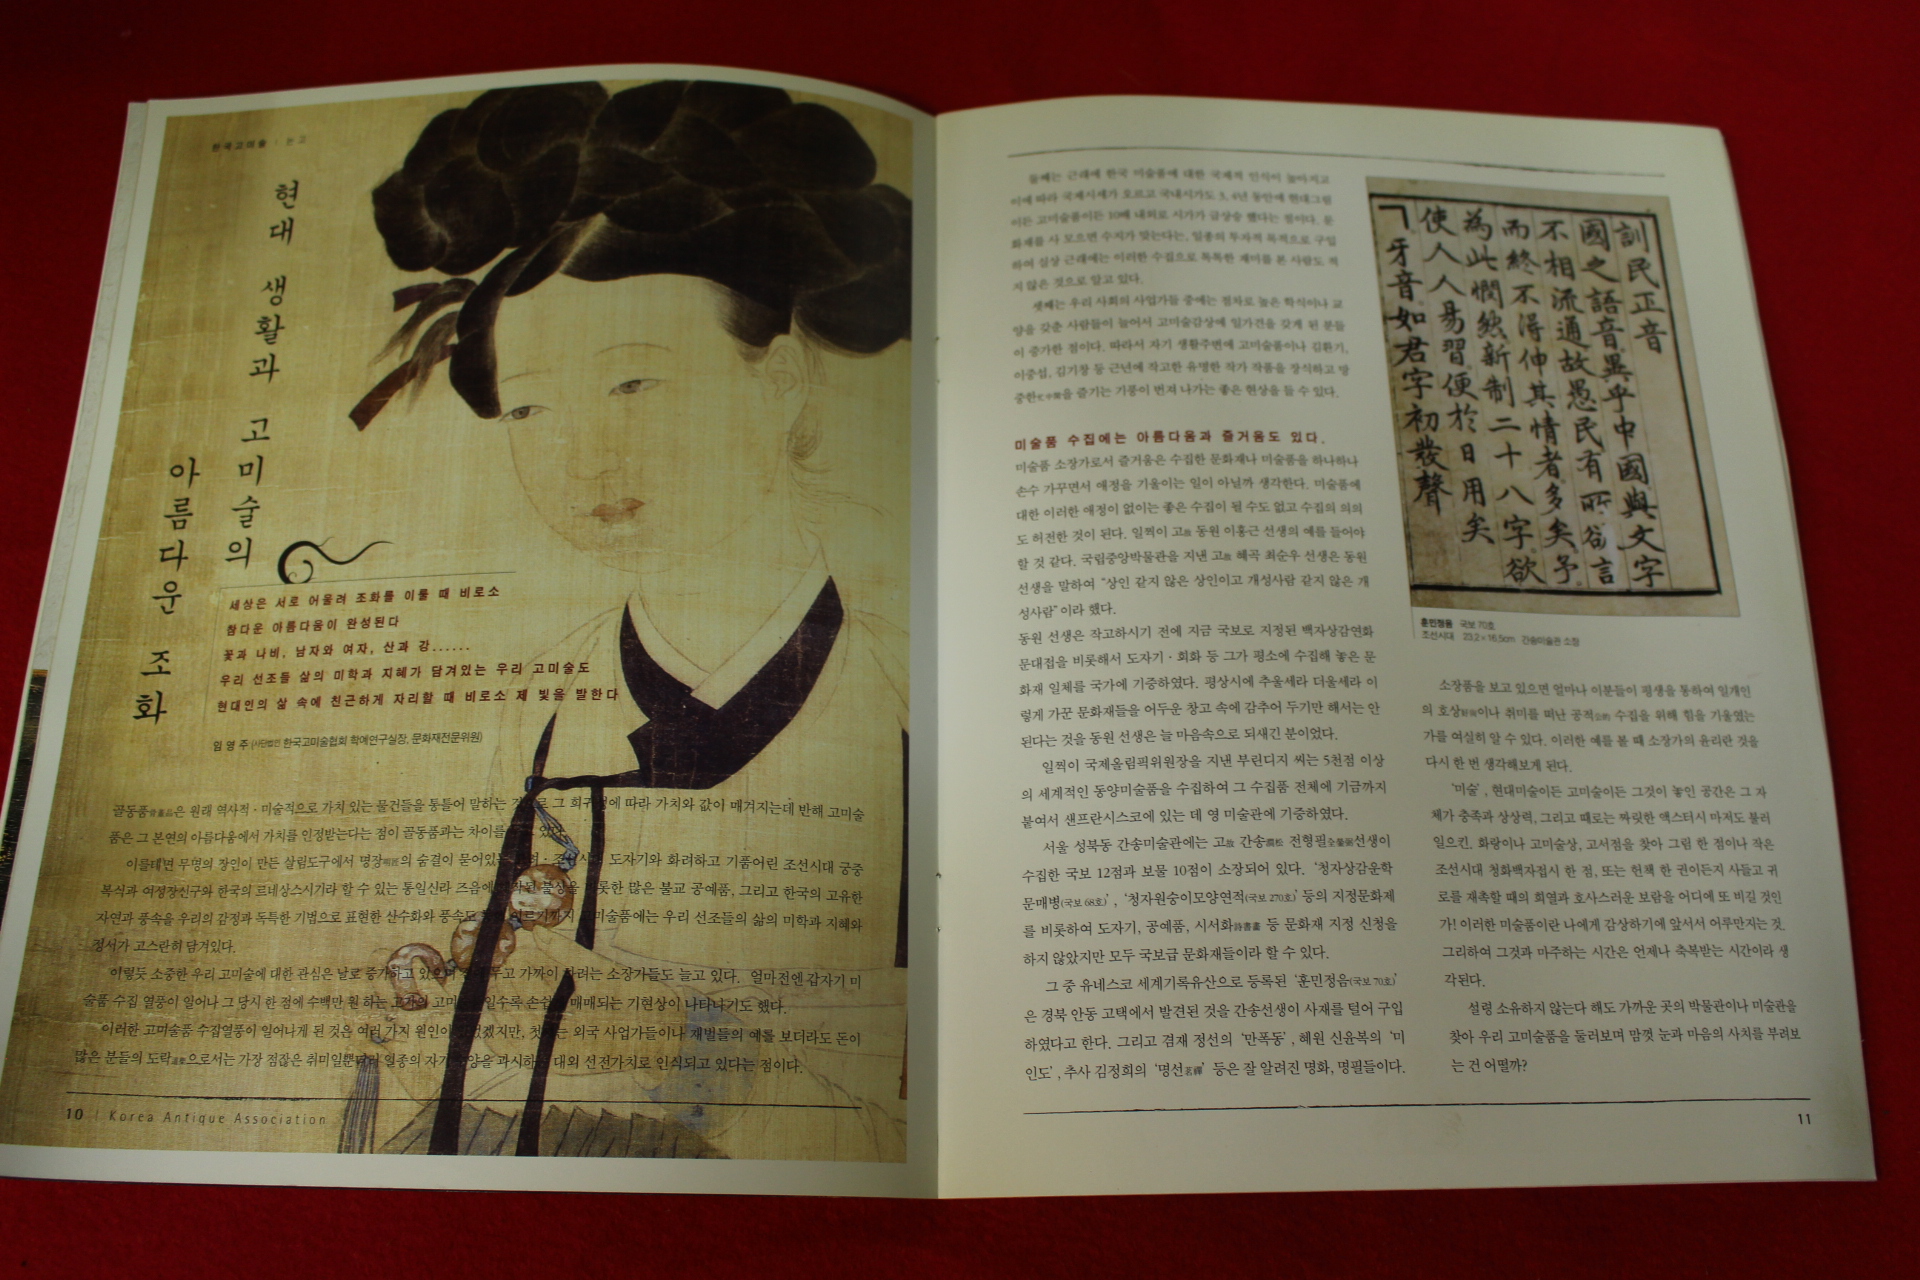 한국고미술 | 논고
현대 생활과 고미술의
아름다운 조화
세상은 서로 어울려 조화를 이룰 때 비로소
참다운 아름다움이 완성된다
꽃과 나비, 남자와 여자, 산과 강......
우리 선조들 삶의 미학과 지혜가 담겨있는 우리 고미술도
현대인의 삶 속에 친근하게 자리할 때 비로소 제 빛을 발한다
임영주 (사단법인 한국고미술협회 학예연구실장, 문화재전문위원)
골동품骨董品은 원래 역사적·미술적으로 가치 있는 물건들을 통틀어 말하는 것으로 그 희구성에 따라 가치와 값이 매겨지는데 반해 고미술
품은 그 본연의 아름다움에서 가치를 인정받는다는 점이 골동품과는 차이를 있다.
이를테면 무명의 장인이 만든 살림도구에서 명장明匠의 숨결이 묻어있는 고려·조선시대 도자기와 화려하고 기품어린 조선시대 궁중
복식과 여성장신구와 한국의 르네상스시기라 할 수 있는 통일신라 즈음에 제작된 불상을 비롯한 많은 불교 공예품, 그리고 한국의 고유한
자연과 풍속을 우리의 감정과 독특한 기법으로 표현한 산수화와 풍속도 이르기까지 고미술품에는 우리 선조들의 삶의 미학과 지혜와
정서가 고스란히 담겨있다.
이렇듯 소중한 우리 고미술에 대한 관심은 날로 증가하고 있으며 두고 가까이 하려는 소장가들도 늘고 있다. 얼마전엔 갑자기 미
술품 수집 열풍이 일어나 그 당시 한 점에 수백만 원 하는 고가의 고미술품일수록 손쉽게 매매되는 기현상이 나타나기도 했다.
이러한 고미술품 수집열풍이 일어나게 된 것은 여러 가지 원인이 있겠지만, 첫째는 외국 사업가들이나 재벌들의 예를 보더라도 돈이
많은 분들의 도락道樂으로서는 가장 점잖은 취미일뿐더러 일종의 자기 교양을 과시하는 대외 선전가치로 인식되고 있다는 점이다.
10 | Korea Antique Association
둘째는 근래에 한국 미술품에 대한 국제적 인식이 높아지고
이에 따라 국제시세가 오르고 국내시가도 3, 4년 동안에 현대그림
이든 고미술품이든 10배 내외로 시가가 급상승 했다는 점이다. 문
화재를 사 모으면 수지가 맞는다는, 일종의 투자적 목적으로 구입
하여 실상 근래에는 이러한 수집으로 톡톡한 재미를 본 사람도 적
지 않은 것으로 알고 있다.
셋째는 우리 사회의 사업가들 중에는 점차로 높은 학식이나 교
양을 갖춘 사람들이 늘어서 고미술감상에 일가견을 갖게 된 분들
이 증가한 점이다. 따라서 자기 생활주변에 고미술품이나 김환기,
이중섭, 김기창 등 근년에 작고한 유명한 작가 작품을 장식하고 망
중한忙中閑을 즐기는 기풍이 번져 나가는 좋은 현상을 들 수 있다.
미술품 수집에는 아름다움과 즐거움도 있다.
미술품 소장가로서 즐거움은 수집한 문화재나 미술품을 하나하나
손수 가꾸면서 애정을 기울이는 일이 아닐까 생각한다. 미술품에
대한 이러한 애정이 없이는 좋은 수집이 될 수도 없고 수집의 의의
도 허전한 것이 된다. 일찍이 고故 동원 이홍근 선생의 예를 들어야
할 것 같다. 국립중앙박물관을 지낸 고故 혜곡 최순우 선생은 동원
선생을 말하여 “상인 같지 않은 상인이고 개성사람 같지 않은 개
성사람”이라 했다.
동원 선생은 작고하시기 전에 지금 국보로 지정된 백자상감연화
문대접을 비롯해서 도자기·회화 등 그가 평소에 수집해 놓은 문
화재 일체를 국가에 기증하였다. 평상시에 추울세라 더울세라 이
렇게 가꾼 문화재들을 어두운 창고 속에 감추어 두기만 해서는 안
된다는 것을 동원 선생은 늘 마음속으로 되새긴 분이었다.
일찍이 국제올림픽위원장을 지낸 부린디지 씨는 5천점 이상
의 세계적인 동양미술품을 수집하여 그 수집품 전체에 기금까지
붙여서 샌프란시스코에 있는 데 영 미술관에 기증하였다.
서울 성북동 간송미술관에는 고故 간송澗松 전형필全鎣弼선생이
수집한 국보 12점과 보물 10점이 소장되어 있다. ‘청자상감운학
문매병(국보 68호)’, ‘청자원숭이모양연적(국보 270호)’ 등의 지정문화제
를 비롯하여 도자기, 공예품, 시서화詩書畵 등 문화재 지정 신청을
하지 않았지만 모두 국보급 문화재들이라 할 수 있다.
그 중 유네스코 세계기록유산으로 등록된 ‘훈민정음(국보 70호)’
은 경북 안동 고택에서 발견된 것을 간송선생이 사재를 털어 구입
하였다고 한다. 그리고 겸재 정선의 ‘만폭동’, 혜원 신윤복의 ‘미
인도’, 추사 김정희의 ‘명선茗禪’ 등은 잘 알려진 명화, 명필들이다.
訓民正音
國之語音異乎中國與文字
不相流通故愚民有所欲言
而終不得伸其情者多矣予
為此憫然新制二十八字欲
使人人易習便於日用矣
ㄱ牙音如君字初發聲
훈민정음 국보 70호
조선시대 23.2×16.5cm 간송미술관 소장
소장품을 보고 있으면 얼마나 이분들이 평생을 통하여 일개인
의 호상好尙이나 취미를 떠난 공적公的 수집을 위해 힘을 기울였는
가를 여실히 알 수 있다. 이러한 예를 볼 때 소장가의 윤리란 것을
다시 한 번 생각해보게 된다.
‘미술’, 현대미술이든 고미술이든 그것이 놓인 공간은 그 자
체가 충족과 상상력, 그리고 때로는 짜릿한 액스터시 마저도 불러
일으킨. 화랑이나 고미술상, 고서점을 찾아 그림 한 점이나 작은
조선시대 청화백자접시 한 점, 또는 헌책 한 권이든지 사들고 귀
로를 재촉할 때의 희열과 호사스러운 보람을 어디에 또 비길 것인
가! 이러한 미술품이란 나에게 감상하기에 앞서서 어루만지는 것.
그리하여 그것과 마주하는 시간은 언제나 축복받는 시간이라 생
각된다.
설령 소유하지 않는다 해도 가까운 곳의 박물관이나 미술관을
찾아 우리 고미술품을 둘러보며 맘껏 눈과 마음의 사치를 부려보
는 건 어떨까?
11